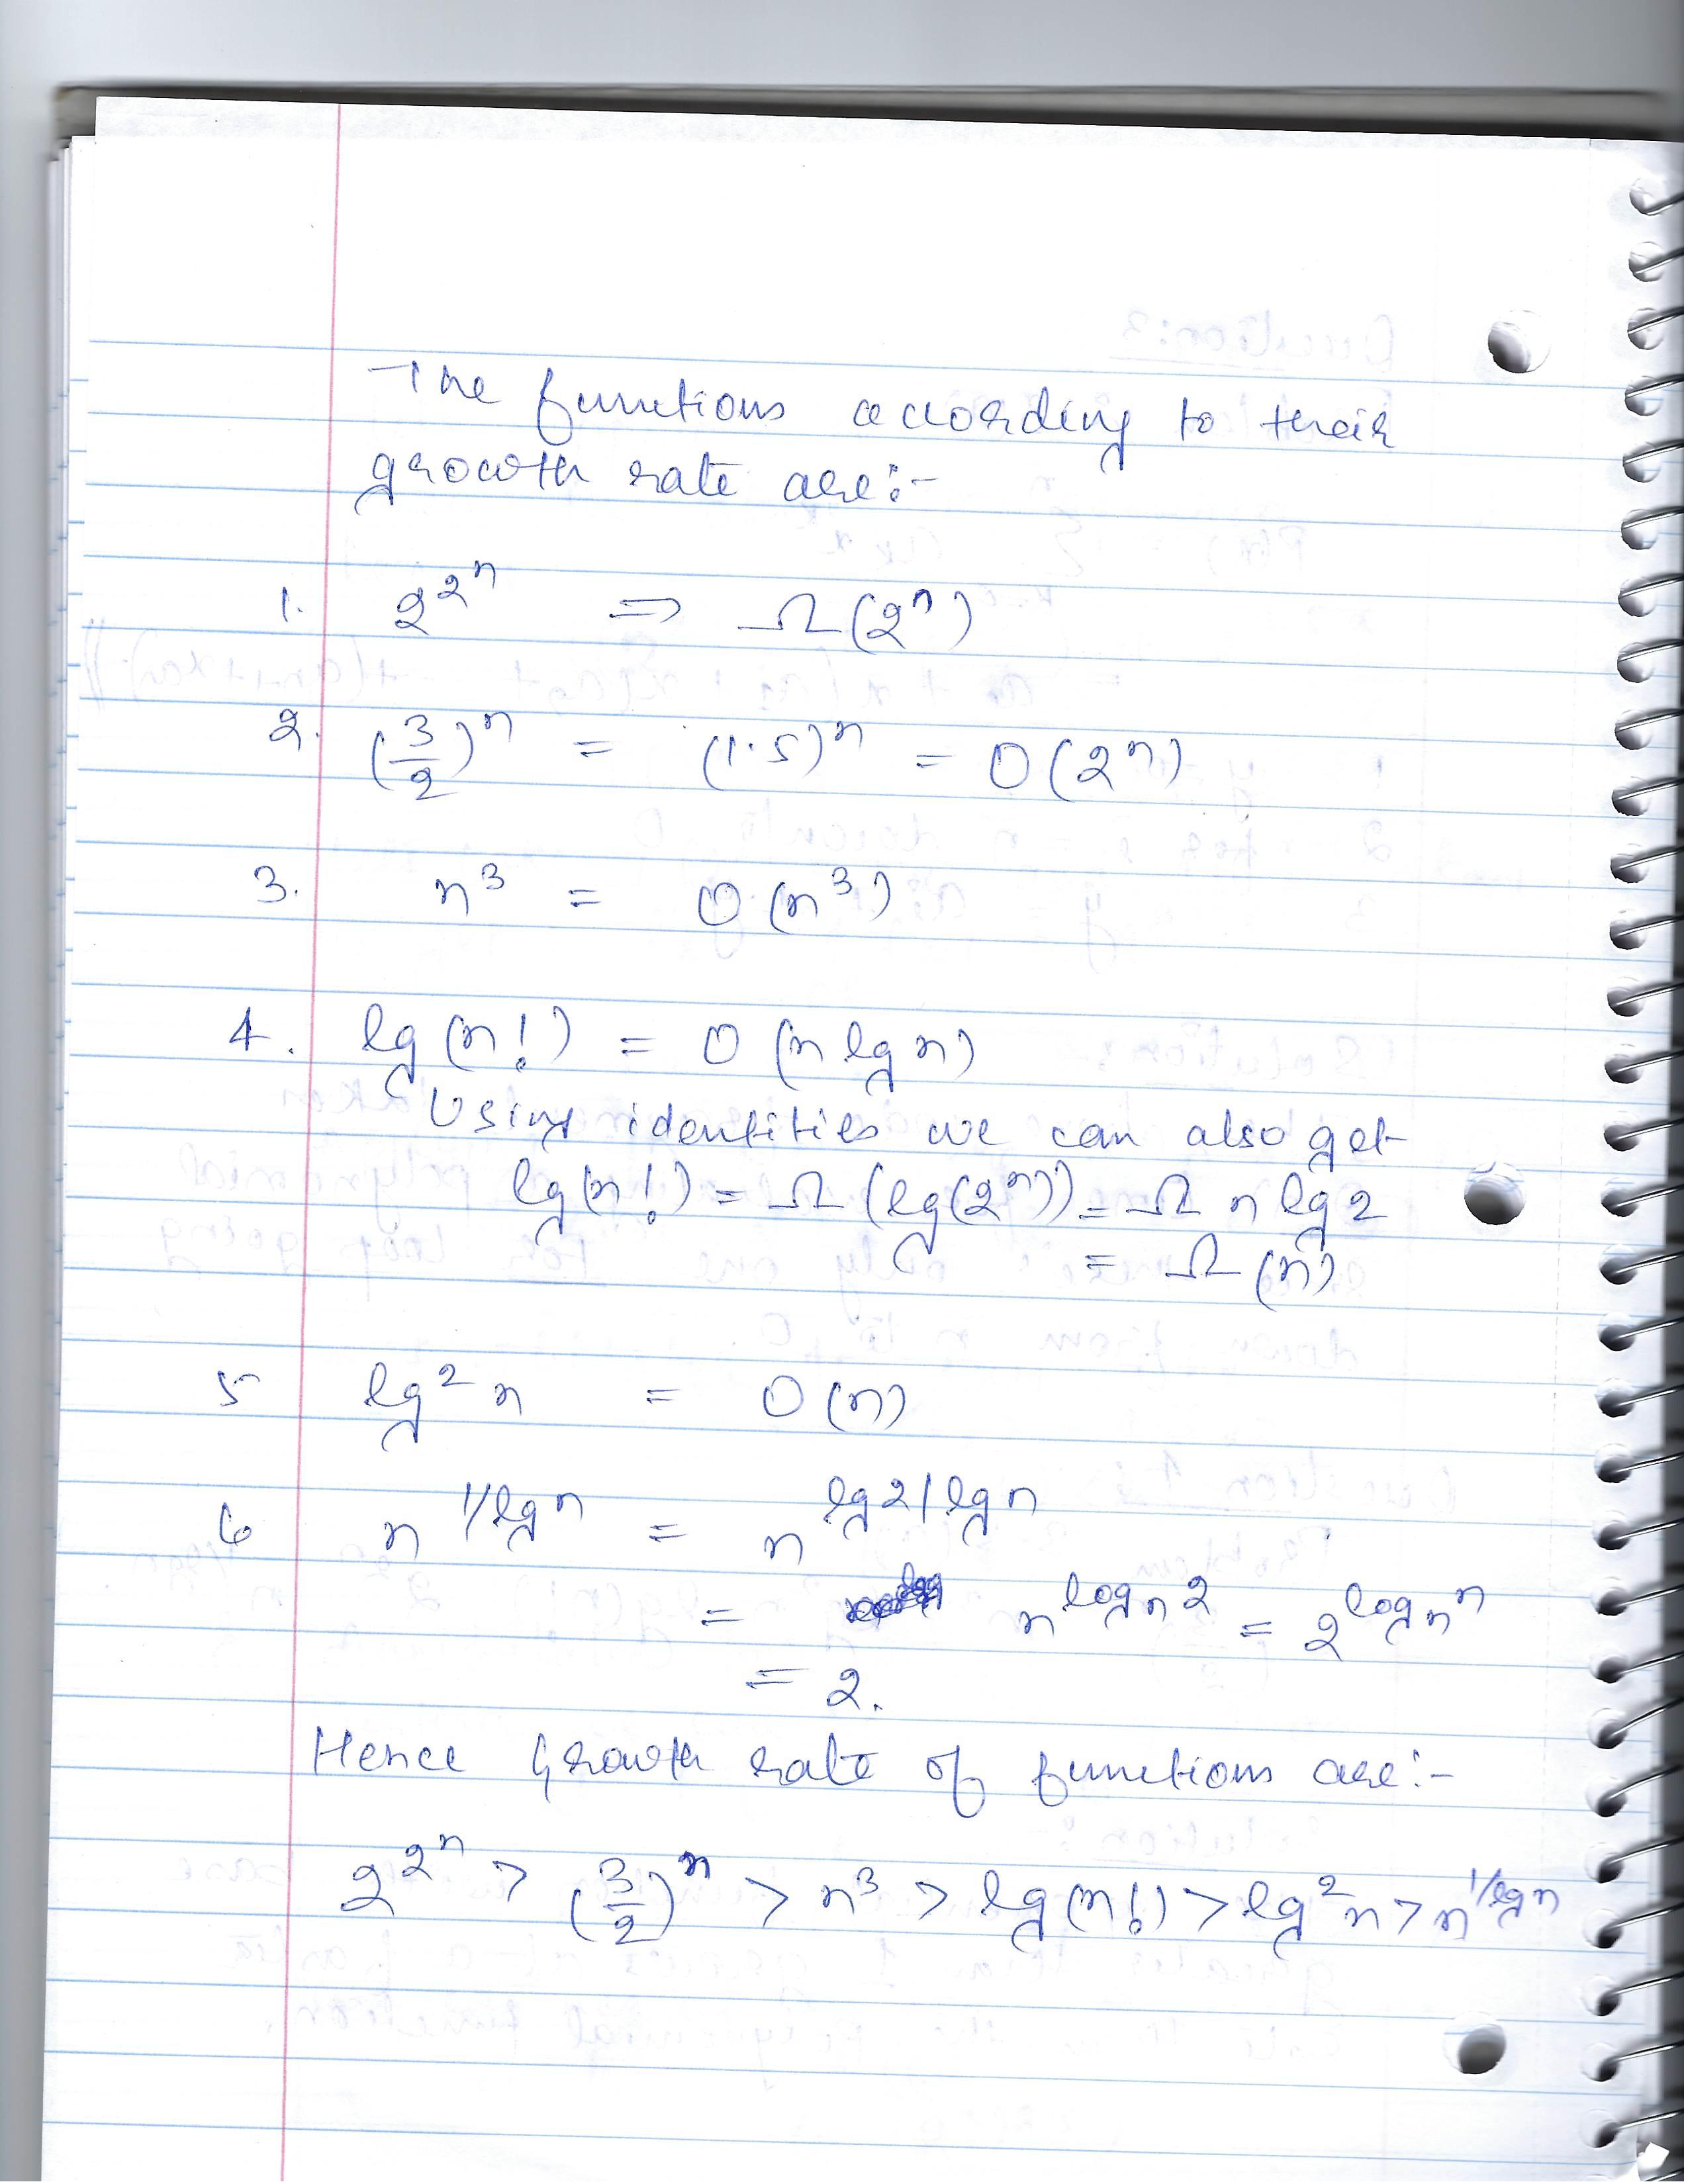 The functions according to their
growth rate are:-
1. 2^2^n => Ω(2^n)
2. (3/2)^n = (1.5)^n = O(2^n)
3. n^3 = O(n^3)
4. lg(n!) = O(n lg n)
Using identities we can also get
lg(n!) = Ω(lg(2^n)) = Ω n lg 2
= Ω(n)
5 lg^2 n = O(n)
6 n^1/lg n = n^lg2/lg n
= n^log_n 2 = 2^log_n n
= 2.
Hence Growth rate of functions are:-
2^2^n > (3/2)^n > n^3 > lg(n!) > lg^2 n > n^1/lg n